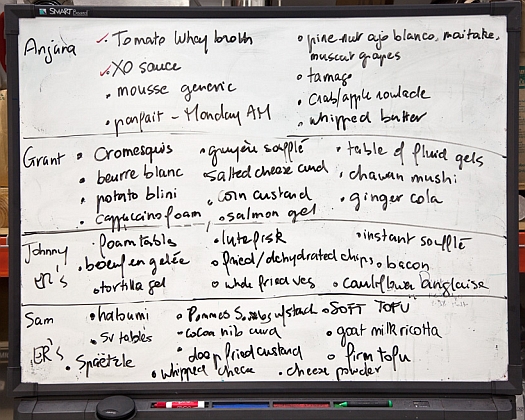 SMART Board
Anjana
Tomato Whey broth
XO sauce
mousse generic
parfait - Monday AM
pine-nut ajo blanco, maitake,
muscat grapes
tamago
Crab/apple roulade
whipped butter
Grant
Cromesquis
beurre blanc
potato blini
Cappuccino foam
gruyère soufflé
salted cheese curd
corn custard
salmon gel
table of fluid gels
chawan mushi
ginger cola
Johnny
ER's
foam tables
boeuf en gelée
tortilla gel
lutefisk
fried/dehydrated chips
whole fried veg
instant soufflé
bacon
cauliflower anglaise
Sam
ER's
haloumi
sv tables
Spaetzle
Pommes
cocoa nib curd
deep fried custard
whipped cheese
SOFT TOFU
goat milk ricotta
firm tofu
cheese powder